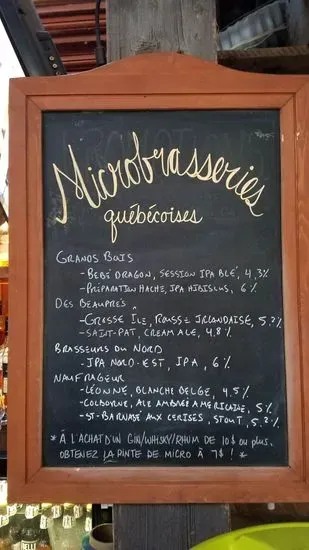 Microbrasseries
québécoises
GRANDS BOIS
- BÉBÉ DRAGON, SESSION IPA BLÉ, 4,3%
- PRÉPARATION HACHE, IPA HIBISCUS, 6%
DES BEAUPRÉS
- GROSSE ÎLE, ROUSSE IRLANDAISE, 5.?%
- SAINT-PAT, CREAM ALE, 4.8%
BRASSEURS DU NORD
- IPA NORD-EST, IPA, 6%
NAUFRAGEUR
- LÉONNE, BLANCHE BELGE, 4.5%
- COLBORNE, ALE AMBRÉE AMÉRICAINE, 5%
- ST-BARNABÉ AUX CERISES, STOUT, 5.?%
* À L'ACHAT D'UN GIN/WHISKY/RHUM DE 10$ OU PLUS,
OBTENEZ LA PINTE DE MICRO À 7$ ! *